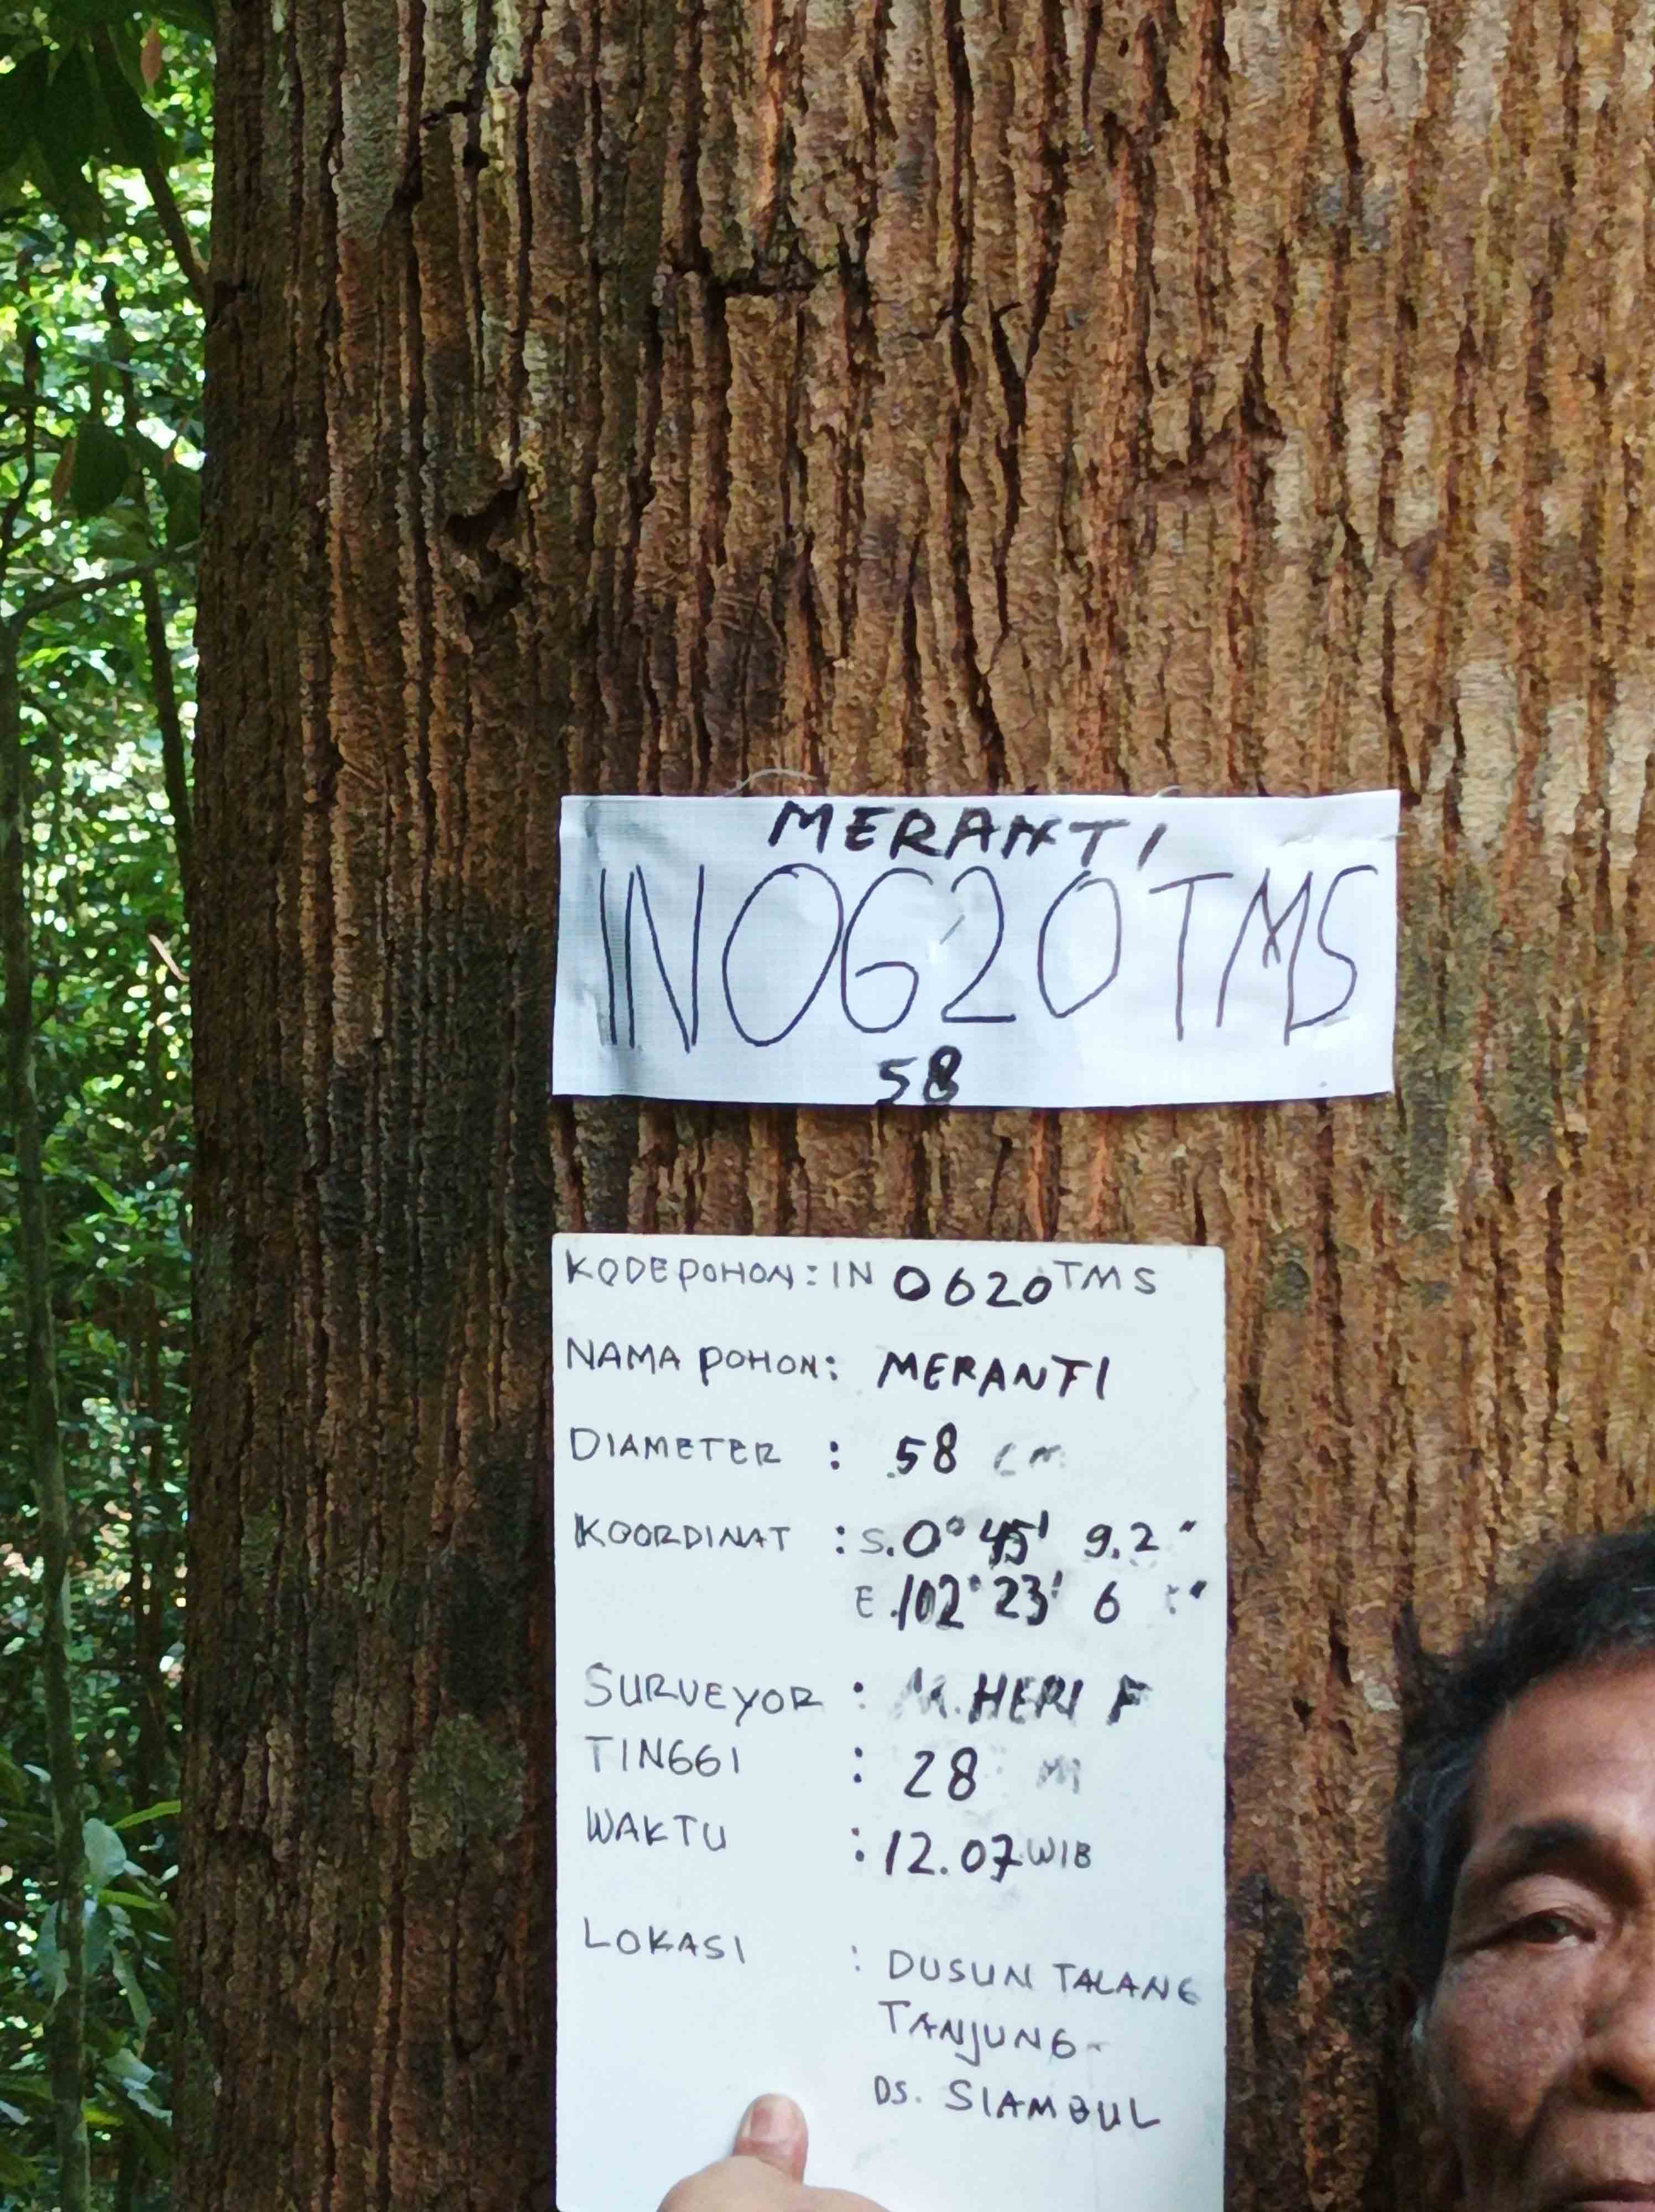 MERANTI
IN0620TMS
58
KODE POHON : IN 0620 TMS
NAMA POHON : MERANTI
DIAMETER : 58 cm
KOORDINAT : S. 0° 45' 9.2"
E. 102° 23' 6 "
SURVEYOR : M. HERI F
TINGGI : 28 M
WAKTU : 12.07 WIB
LOKASI : DUSUN TALANG
TANJUNG-
DS. SIAMBUL